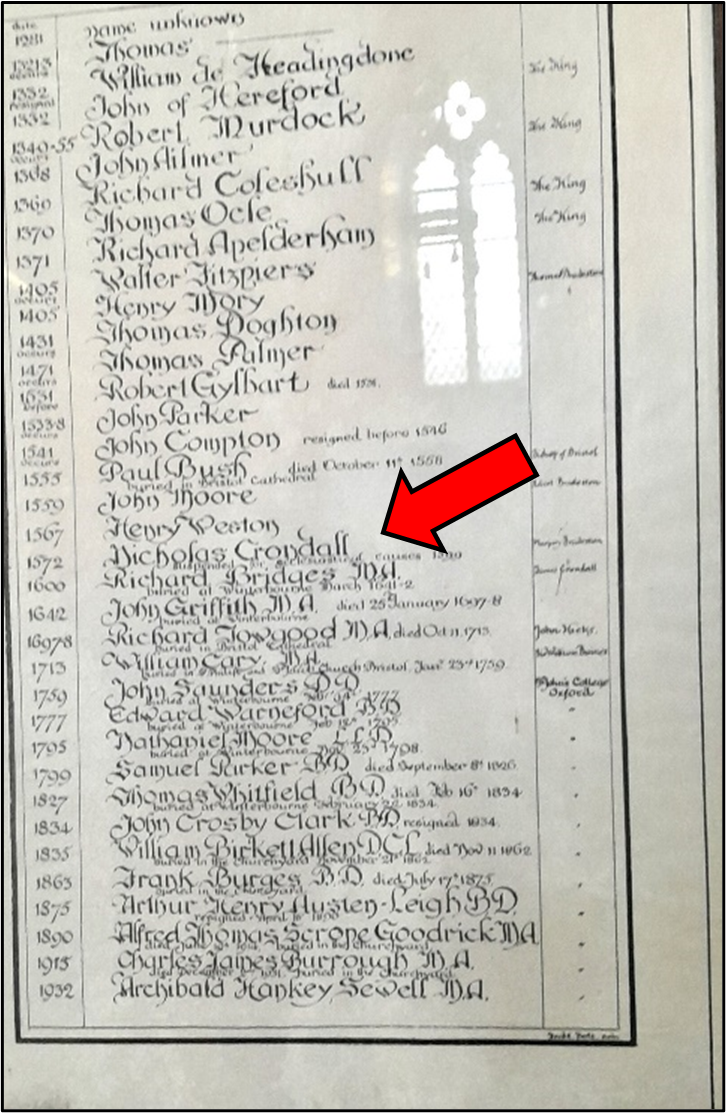 date
1281 name unknown
1321-3 Thomas
occurs
1332 William de Headingdone The King
resigned
1332 John of Hereford
1340-55 Robert Murdock The King
occurs
1368 John Ailmer
1369 Richard Coleshull The King
1370 Thomas Ocle The King
1371 Richard Apelderham
1405 Walter Fitzpiers
occurs
1405 Henry Mory
1431 Thomas Doghton
occurs
1471 Thomas Palmer
occurs
1531 Robert Gylbart died 1531.
before
1533-8 John Parker
occurs
1541 John Compton resigned before 1546
occurs
1555 Paul Bush died October 11th 1558 Bishop of Bristol
buried in Bristol Cathedral
1559 John Moore
1567 Henry Weston
1572 Nicholas Crondall
suspended for ecclesiastical causes
1600 Richard Bridges M.A.
buried at Winterbourne March 1641-2
1642 John Griffith M.A. died 25 January 1697-8
buried at Winterbourne
1697-8 Richard Towgood M.A. died Oct 11. 1713.
buried in Bristol Cathedral
1713 William Cary. M.A.
buried in Church Bristol. Jan 23rd 1759.
1759 John Saunders D.D. St John's College
buried at Winterbourne 1777 Oxford
1777 Edward Warneford B.D. "
buried at Winterbourne Feb 1795.
1795 Nathaniel Moore L.L.D. "
buried at Winterbourne 1798.
1799 Samuel Parker B.D. died September 8th 1826. "
1827 Thomas Whitfield B.D. died Feb 16th 1834 "
buried at Winterbourne February 1834.
1834 John Crosby Clark B.D. resigned 1834. "
1835 William Birkett Allen D.C.L. died Nov. 11 1862 "
buried in the Churchyard November 1862.
1863 Frank Burges B.D. died July 17th 1875 "
buried in the Churchyard
1875 Arthur Henry Austen-Leigh B.D. "
resigned April 1890
1890 Alfred Thomas Scrope Goodrick M.A. "
buried in the Churchyard.
1915 Charles James Burrough M.A. "
died December 1931. buried in the Churchyard.
1932 Archibald Hankey Sewell M.A. "